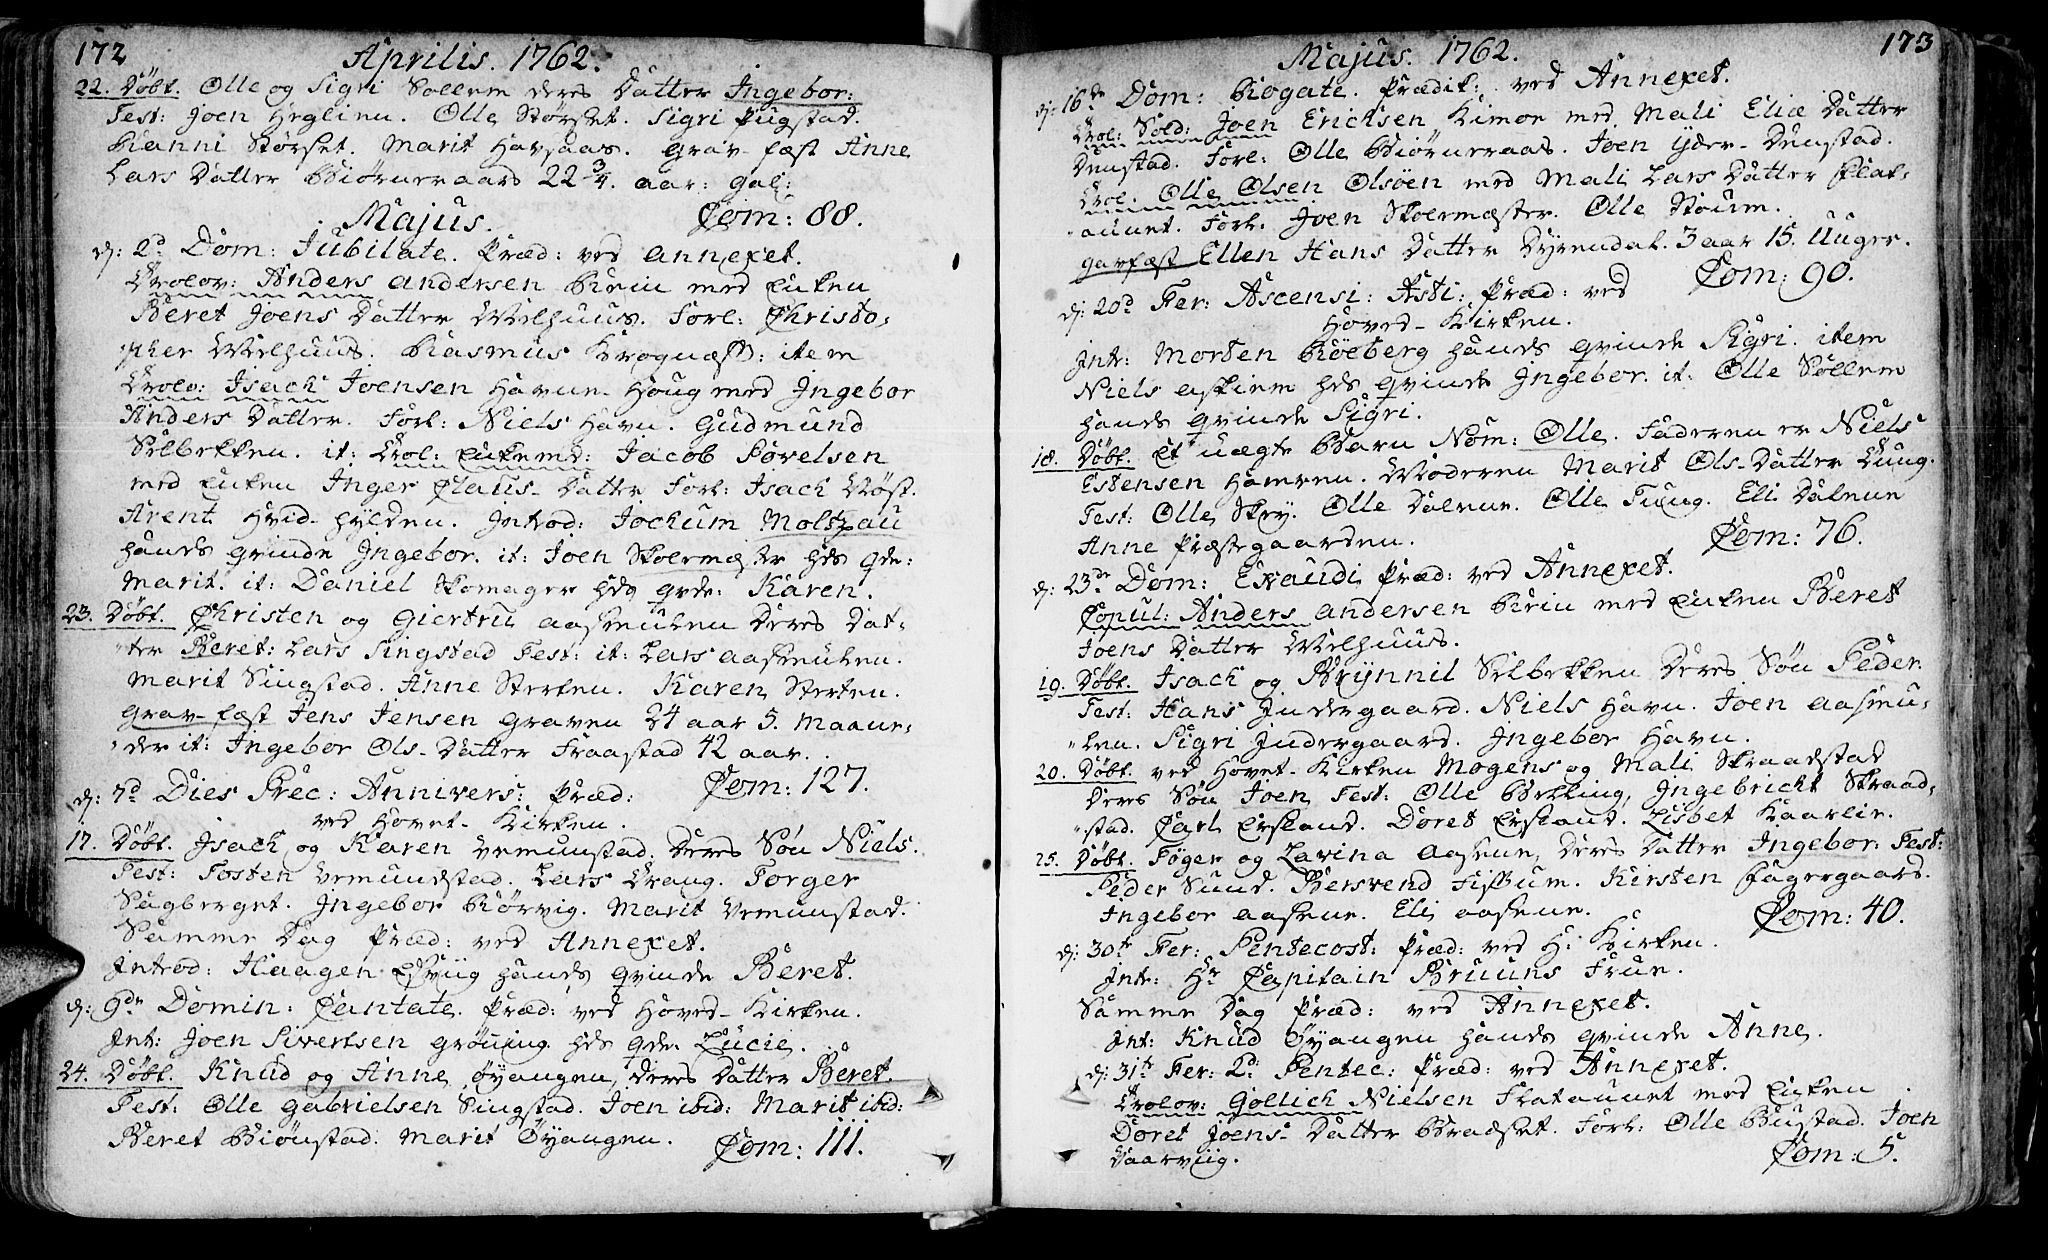 172 Aprilis. 1762.
22. Døbt. Olle og Sigri Sollem deres Datter Ingebor:
Test: Joen Heglim. Olle Størset. Sigri Pugstad.
Ranni Størset. Marit Havsaas. Grav-fæst Anne
Lars Datter Biørneraas 22 3/4. aar: gal:
Majus. Com: 88.
d: 2d Dom: Jubilate. Præd: ved Annexet.
Trolov: Anders Andersen Krin med Enken
Beret Joens Datter Melhuus. Forl: Christo,
pher Melhuus. Rasmus Krognæss: item
Trolo: Isach Joensen Havne-Houg med Ingebor
Anders Datter. Forl: Niels Havn. Gudmund
Selbekken. it: Trol: Enkemd: Jacob Povelsen
med Enken Inger Claus-Datter Forl: Isach Møst.
Arent Hvid-Hylden. Introd: Jochum Moltzau
hands qvinde Ingebor. it: Joen Skoermæster hds qde:
Marit. it: Daniel Skomager hds qvde: Karen.
23. Døbt. Christen og Giertru Aasmulen Deres Dat,
ter Beret: Lars Singstad Test: it: Lars Aasmulen.
Marit Singstad. Anne Sterten. Karen Sterten.
Grav-fæst Jens Jensen Graven 24 aar 5. Maane,
der it: Ingebor Ols-Datter Fraastad 42 aar.
d: 7d Dies Prec: Annivers: Præd: Com: 127.
ved Hovet-Kirken.
17. Døbt. Isach og Karen Vemunstad, Deres Søn Niels.
Test: Tosten Vemundstad. Lars Trang. Torger
Sagberget. Ingebor Rørvig. Marit Vemunstad.
Samme Dag Præd: ved Annexet.
Introd: Haagen Esviig hands qvinde Beret.
d: 9de Domin: Cantate. Præd: ved Hoved-Kirken.
Int: Joen Sivertsen Grøning hds qde. Lucie.
24. Døbt. Knud og Anne Øyangen, deres Datter Beret.
Test: Olle Gabrielsen Singstad. Joen ibid: Marit ibid:
Beret Biønstad. Marit Øyangen. Com: 111.
Majus. 1762. 173
d: 16de Dom: Rogate. Prædik: ved Annexet.
Trol: Sold: Joen Erichsen Kimoe med Mali Eliæ Datter
Denstad. Forl: Olle Biørneraas. Joen Yder-Denstad.
Trol. Olle Olsen Olsøen med Mali Lars Datter Flat,
aunet. Forl. Joen Skoermæster. Olle Stoum.
Gavfæst Ellen Hans Datter Dyrendal. 3 aar 15. Uuger.
d: 20d Fer: Ascensi: Xsti: Præd: ved Com: 90.
Hoved-Kirken.
Intr: Morten Røeberg hands qvinde Sigri. item
Niels Askiem hds qvinde Ingebor. it: Olle Sollem
hands qvinde Sigri.
18. Døbt. Et uægte Barn Nom: Olle. Faderen er Niels
Estensen Hamren. Moderen Marit Ols-Datter Tung.
Test: Olle Skey. Olle Dalene. Olle Tung. Eli Dalene
Anne Præstegaarden. Com: 76.
d: 23de Dom: Exaudi Præd: ved Annexet.
Copul: Anders Andersen Krin med Enken Beret
Joens Datter Melhuus.
19. Døbt. Isach og Brynnil Selbekken Deres Søn Peder.
Test: Hans Indergaard. Niels Havn. Joen Aasmu,
len. Sigri Indergaard. Ingebor Havn.
20. Døbt. ved Hovet-Kirken Mogens og Mali Skraadstad
Deres Søn Joen Test: Olle Bekking, Ingebricht Skraad,
stad. Carl Ersland. Doret Ersland. Lisbet Kaarlie.
25. Døbt. Føger og Lavina Aasene, Deres Datter Ingebor: Test:
Peder Sund. Bersvend Fissum. Kirsten Fagergaard.
Ingebor Aasene. Eli Aasene. Com: 40.
d: 30te Fer: Pentecost: Præd: ved H: Kirken.
Int: Hr Capitain Bruuns Frue.
Samme Dag Præd: ved Annexet.
Int: Knud Øyangen hands qvinde Anne.
d: 31te Fer: 2d: Pentec: Præd: ved Annexet.
Trolov: Gøllich Nielsen Flataunet med Enken
Doret Joens-Datter Bradset. Forl: Olle Bustad. Joen
Vaarviig. Com: 5.